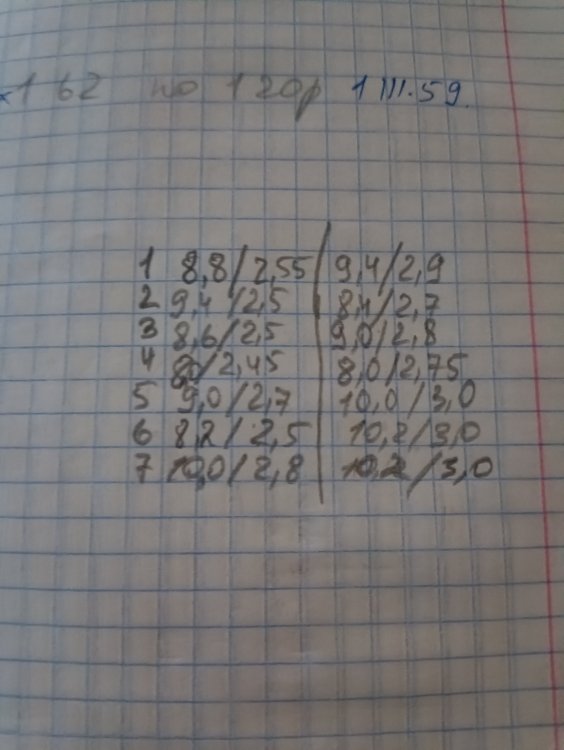 1 62 по 120р 1 III.59.
1 8,8/2,55 | 9,4/2,9
2 9,4/2,5 | 8,4/2,7
3 8,6/2,5 | 9,0/2,8
4 /2,45 | 8,0/2,75
5 9,0/2,7 | 10,0/3,0
6 8,2/2,5 | 10,2/3,0
7 10,0/2,8 | 10,2/3,0